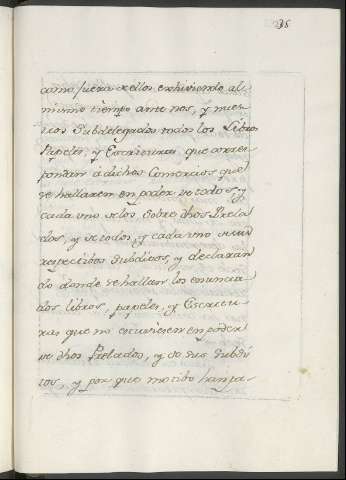 38
como fuera de ellos exhiviendo al
mismo tiempo ante nos, y nues
tros Subdelegados todos los Libros
Papeles, y Escrituras que corres
pondan á dichos Comercios que
se hallaren en poder de todos, y
cada uno de los sobre dhos Prela
dos, y de todos, y cada uno de sus
respectibos Subditos, y declaran
do donde se hallan los enuncia
dos libros, papeles, y Escritu
ras que no estuviesen en poder
de dhos Prelados, y de sus Subdi
tos, y por que motibo han pa-